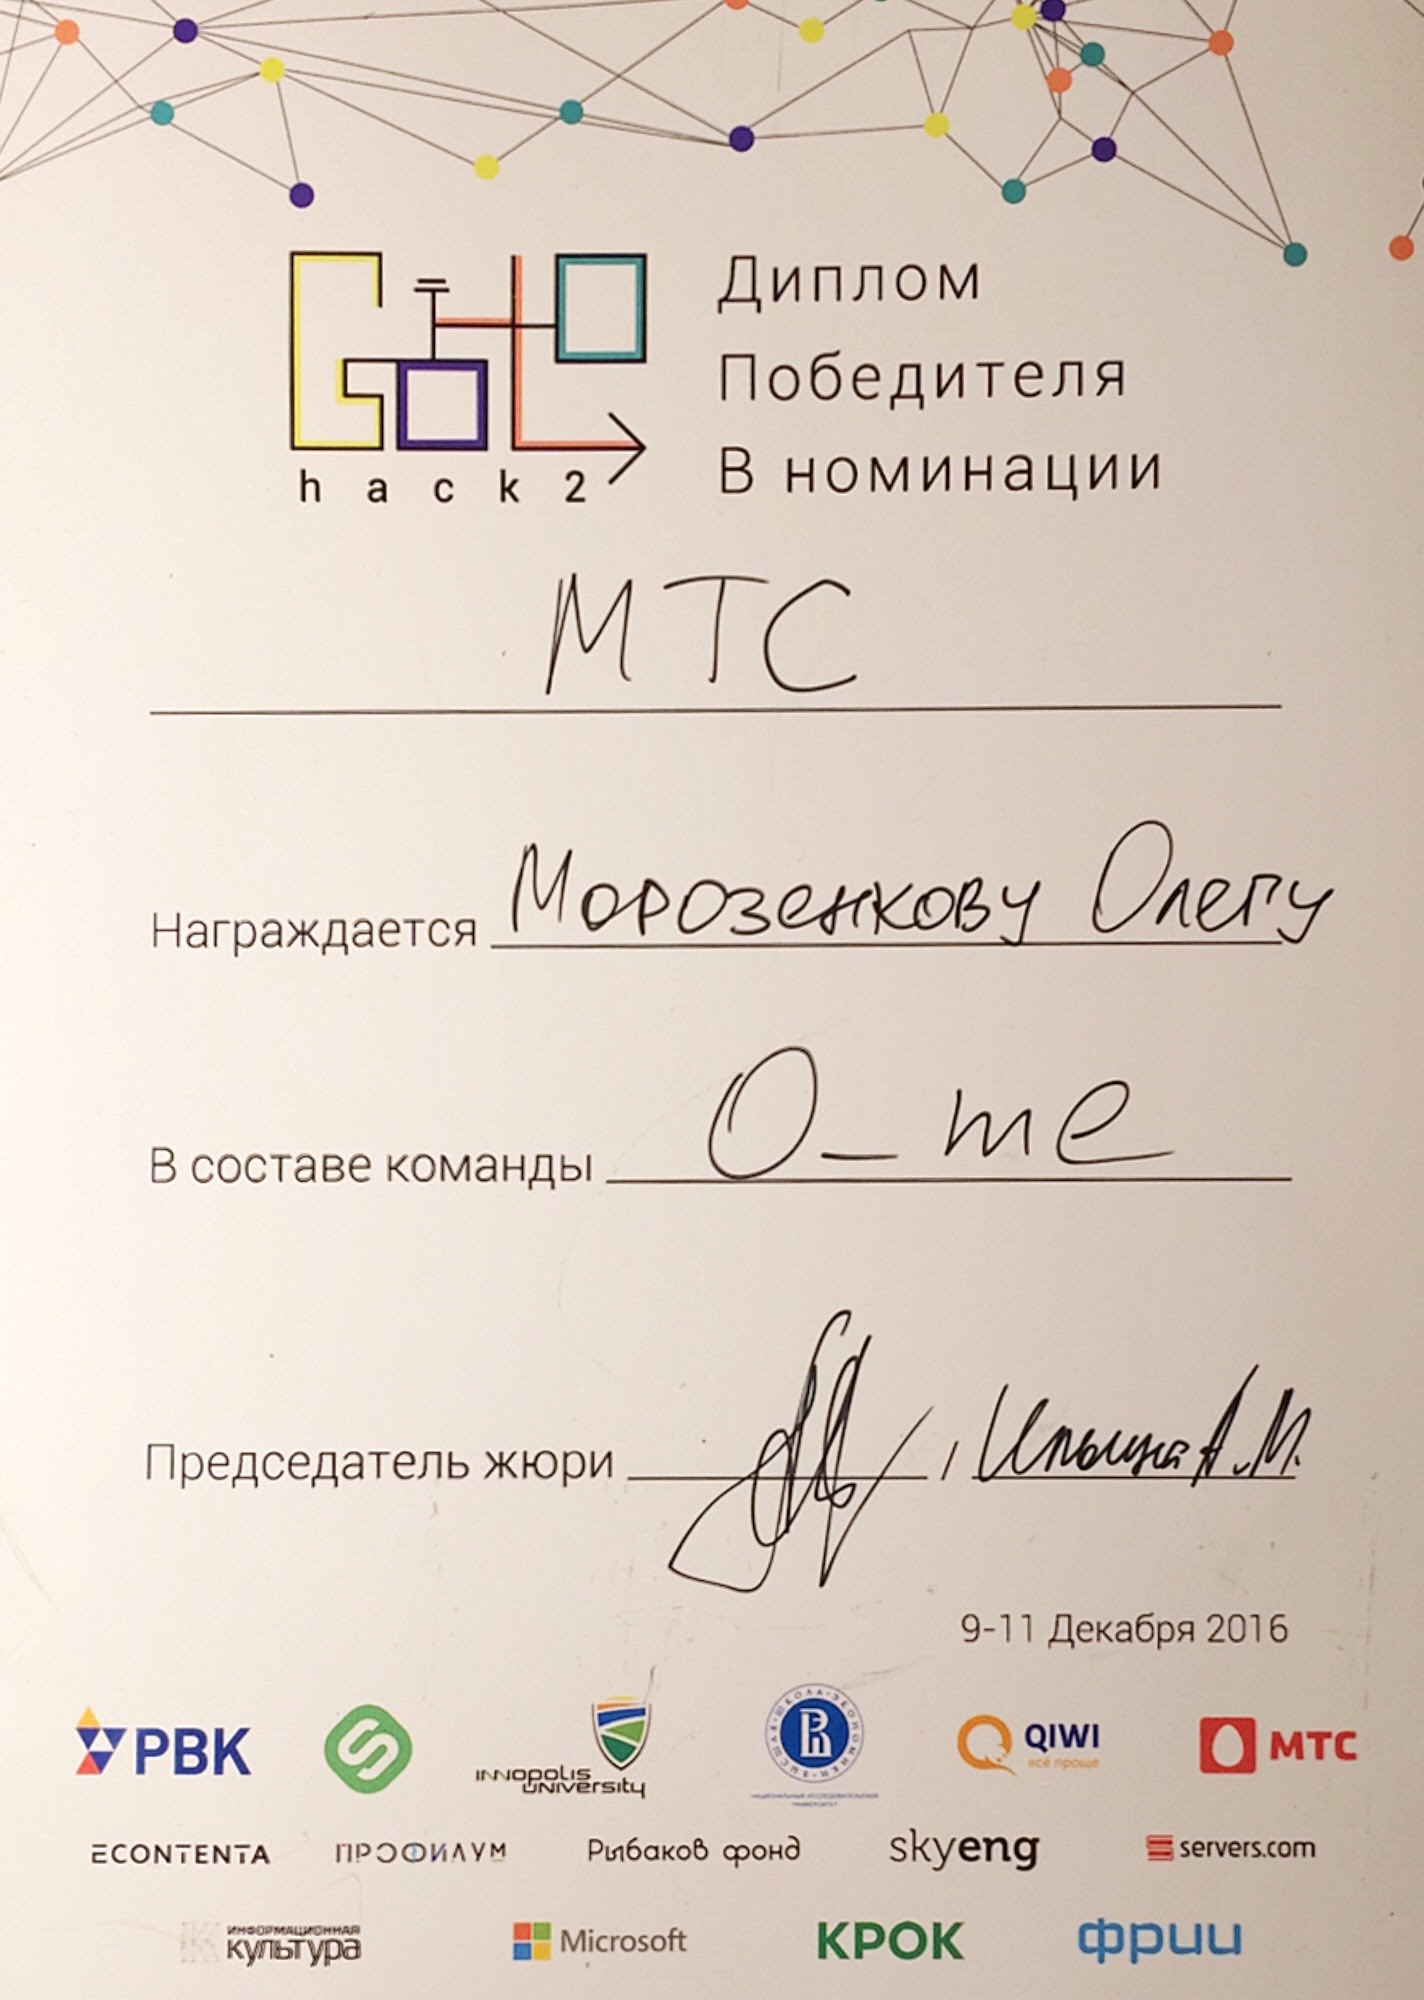 GoTo
hack2
Диплом
Победителя
В номинации
МТС
Награждается Морозенкову Олегу
В составе команды O_me
Председатель жюри / А.М.
9-11 Декабря 2016
РВК
INNOPOLIS UNIVERSITY
ВЫСШАЯ ШКОЛА ЭКОНОМИКИ
НАЦИОНАЛЬНЫЙ ИССЛЕДОВАТЕЛЬСКИЙ
УНИВЕРСИТЕТ
QIWI
всё проще
МТС
ECONTENTA ПРОФИЛУМ Рыбаков фонд skyeng servers.com
ИНФОРМАЦИОННАЯ
культура
Microsoft КРОК фрии